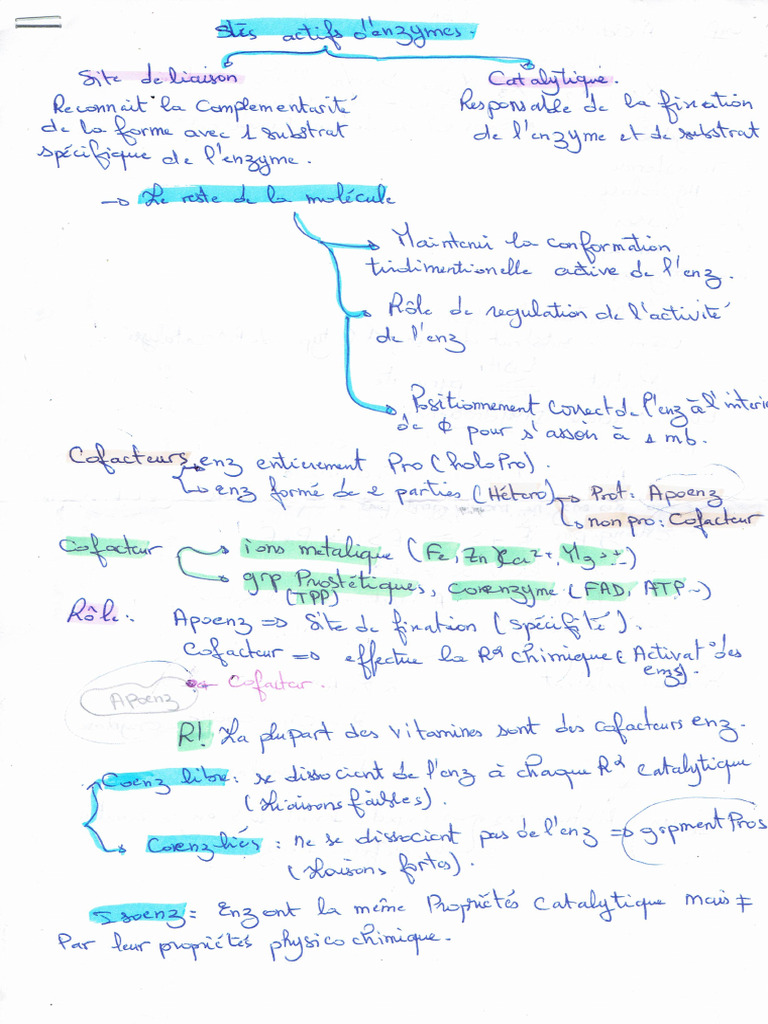 Sites actifs d'enzymes.
Site de liaison
Catalytique.
Reconnait la Complementarité
de la forme avec 1 substrat
spécifique de l'enzyme.
Responsable de la fixation
de l'enzyme et de substrat
→ Le reste de la molécule
→ Maintenir la conformation
tridimentionelle active de l'enz.
→ Rôle de regulation de l'activité
de l'enz
→ Positionnement correct de l'enz à l'interi
de ¢ pour s'assoir à 1 mb.
Cofacteurs enz entierement Pro (holoPro).
↳ enz formé de 2 parties (Hétero) → Prot: Apoenz
↳ non pro: Cofacteur
Cofacteur → ions metalique (Fe, Zn, Ca²⁺, Mg²⁺...)
→ grp Prostétiques, Coenzyme (FAD, ATP...)
(TPP)
Rôle: Apoenz => Site de fixation (spécifité).
Cofacteur => effectue la R° chimique (Activat° des
enzs).
Apoenz Cofacteur.
R! La plupart des vitamines sont des cofacteurs enz.
Coenz libre: se dissocient de l'enz à chaque R° catalytique
(Liaisons faibles).
Coenz liés: ne se dissocient pas de l'enz => gropment Pros
(Liaisons fortes).
Isoenz = Enz ont la même Propriétés Catalytique mais ≠
Par leur propriétés physico chimique.